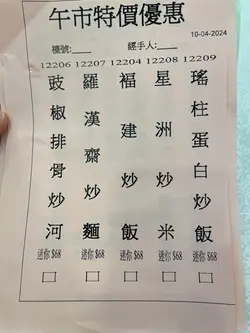 午市特價優惠
10-04-2024
檯號:___ 經手人:___
12206 12207 12204 12208 12209
豉椒排骨炒河
羅漢齋炒麵
福建炒飯
星洲炒米
瑤柱蛋白炒飯
迷你 $68 迷你 $68 迷你 $68 迷你 $68 迷你 $68